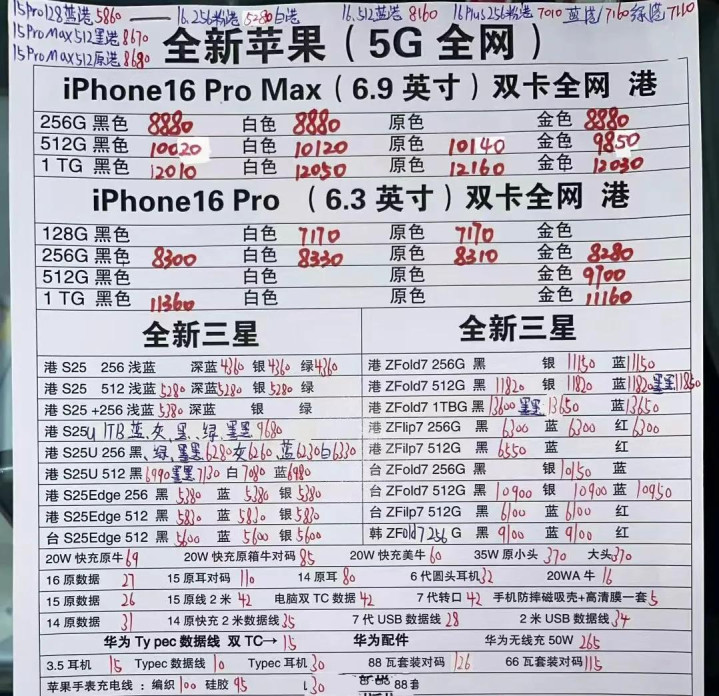 15Pro128蓝港5860 —— 16.256粉港5280白港 16.512蓝港8160 16Plus256粉港7010蓝港/7160绿港7110
15ProMax512黑港8670
15ProMax512原港8680
全新苹果（5G 全网）
iPhone16 Pro Max（6.9 英寸）双卡全网 港
256G 黑色 8880 白色 8880 原色 金色 8880
512G 黑色 10020 白色 10120 原色 10140 金色 9850
1 TG 黑色 12010 白色 12050 原色 12160 金色 12030
iPhone16 Pro （6.3 英寸）双卡全网 港
128G 黑色 白色 7170 原色 7170 金色
256G 黑色 8300 白色 8330 原色 8310 金色 8280
512G 黑色 白色 原色 金色 9700
1 TG 黑色 11360 白色 原色 金色 11160
全新三星
港 S25 256 浅蓝 深蓝4360 银4360 绿4360
港 S25 512 浅蓝5280 深蓝5280 银5280 绿
港 S25 +256 浅蓝5380 深蓝 银 绿
港 S25U 1TB 蓝、灰、黑、绿、墨黑9680
港 S25U 256 黑、绿、墨黑6280灰6260、蓝6230白6330
港 S25U 512 黑6990墨黑7130 白7080 蓝6980
港 S25Edge 256 黑 5380 蓝 5380 银5380
港 S25Edge 512 黑 5830 蓝 5830 银5830
台 S25Edge 512 黑 5600 蓝 5600 银5600
全新三星
港 ZFold7 256G 黑 银 11150 蓝11150
港 ZFold7 512G 黑 11820 银 11820 蓝11820墨黑11850
港 ZFold7 1TBG 黑13600墨黑13650 蓝13650
港 ZFlip7 256G 黑 6300 蓝 6300 红 6300
港 ZFilp7 512G 黑 6550 蓝 红
台 ZFold7 256G 黑 银10150 蓝
台 ZFold7 512G 黑 10900 银 10900 蓝 10950
台 ZFilp7 512G 黑 6100 蓝 6100 红
韩 ZFold7 256 G 黑 9100 蓝 9100 红
20W 快充原牛69 20W 快充原箱牛对码85 20W 快充美牛60 35W 原小头 370 大头370
16 原数据 27 15 原耳对码 110 14 原耳 80 6 代圆头耳机32 20WA 牛 16
15 原数据 26 15 原线 2 米 42 电脑双 TC 数据 42 7 代转口 42 手机防摔磁吸壳+高清膜一套5
14 原数据 31 14 原快充 2 米数据线35 7 代 USB 数据线 28 2 米 USB 数据线34
华为 Ty pec 数据线 双 TC→ 15 华为配件 华为无线充 50W 265
3.5 耳机 15 Typec 数据线 10 Typec 耳机 30 88 瓦套装对码 126 66 瓦套装对码115
苹果手表充电线：编织 100 硅胶 95 30 88套